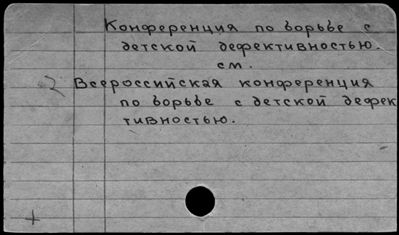 Конференция по борьбе с
детской дефективностью.
см.
Всероссийская конференция
по борьбе с детской дефек
тивностью.